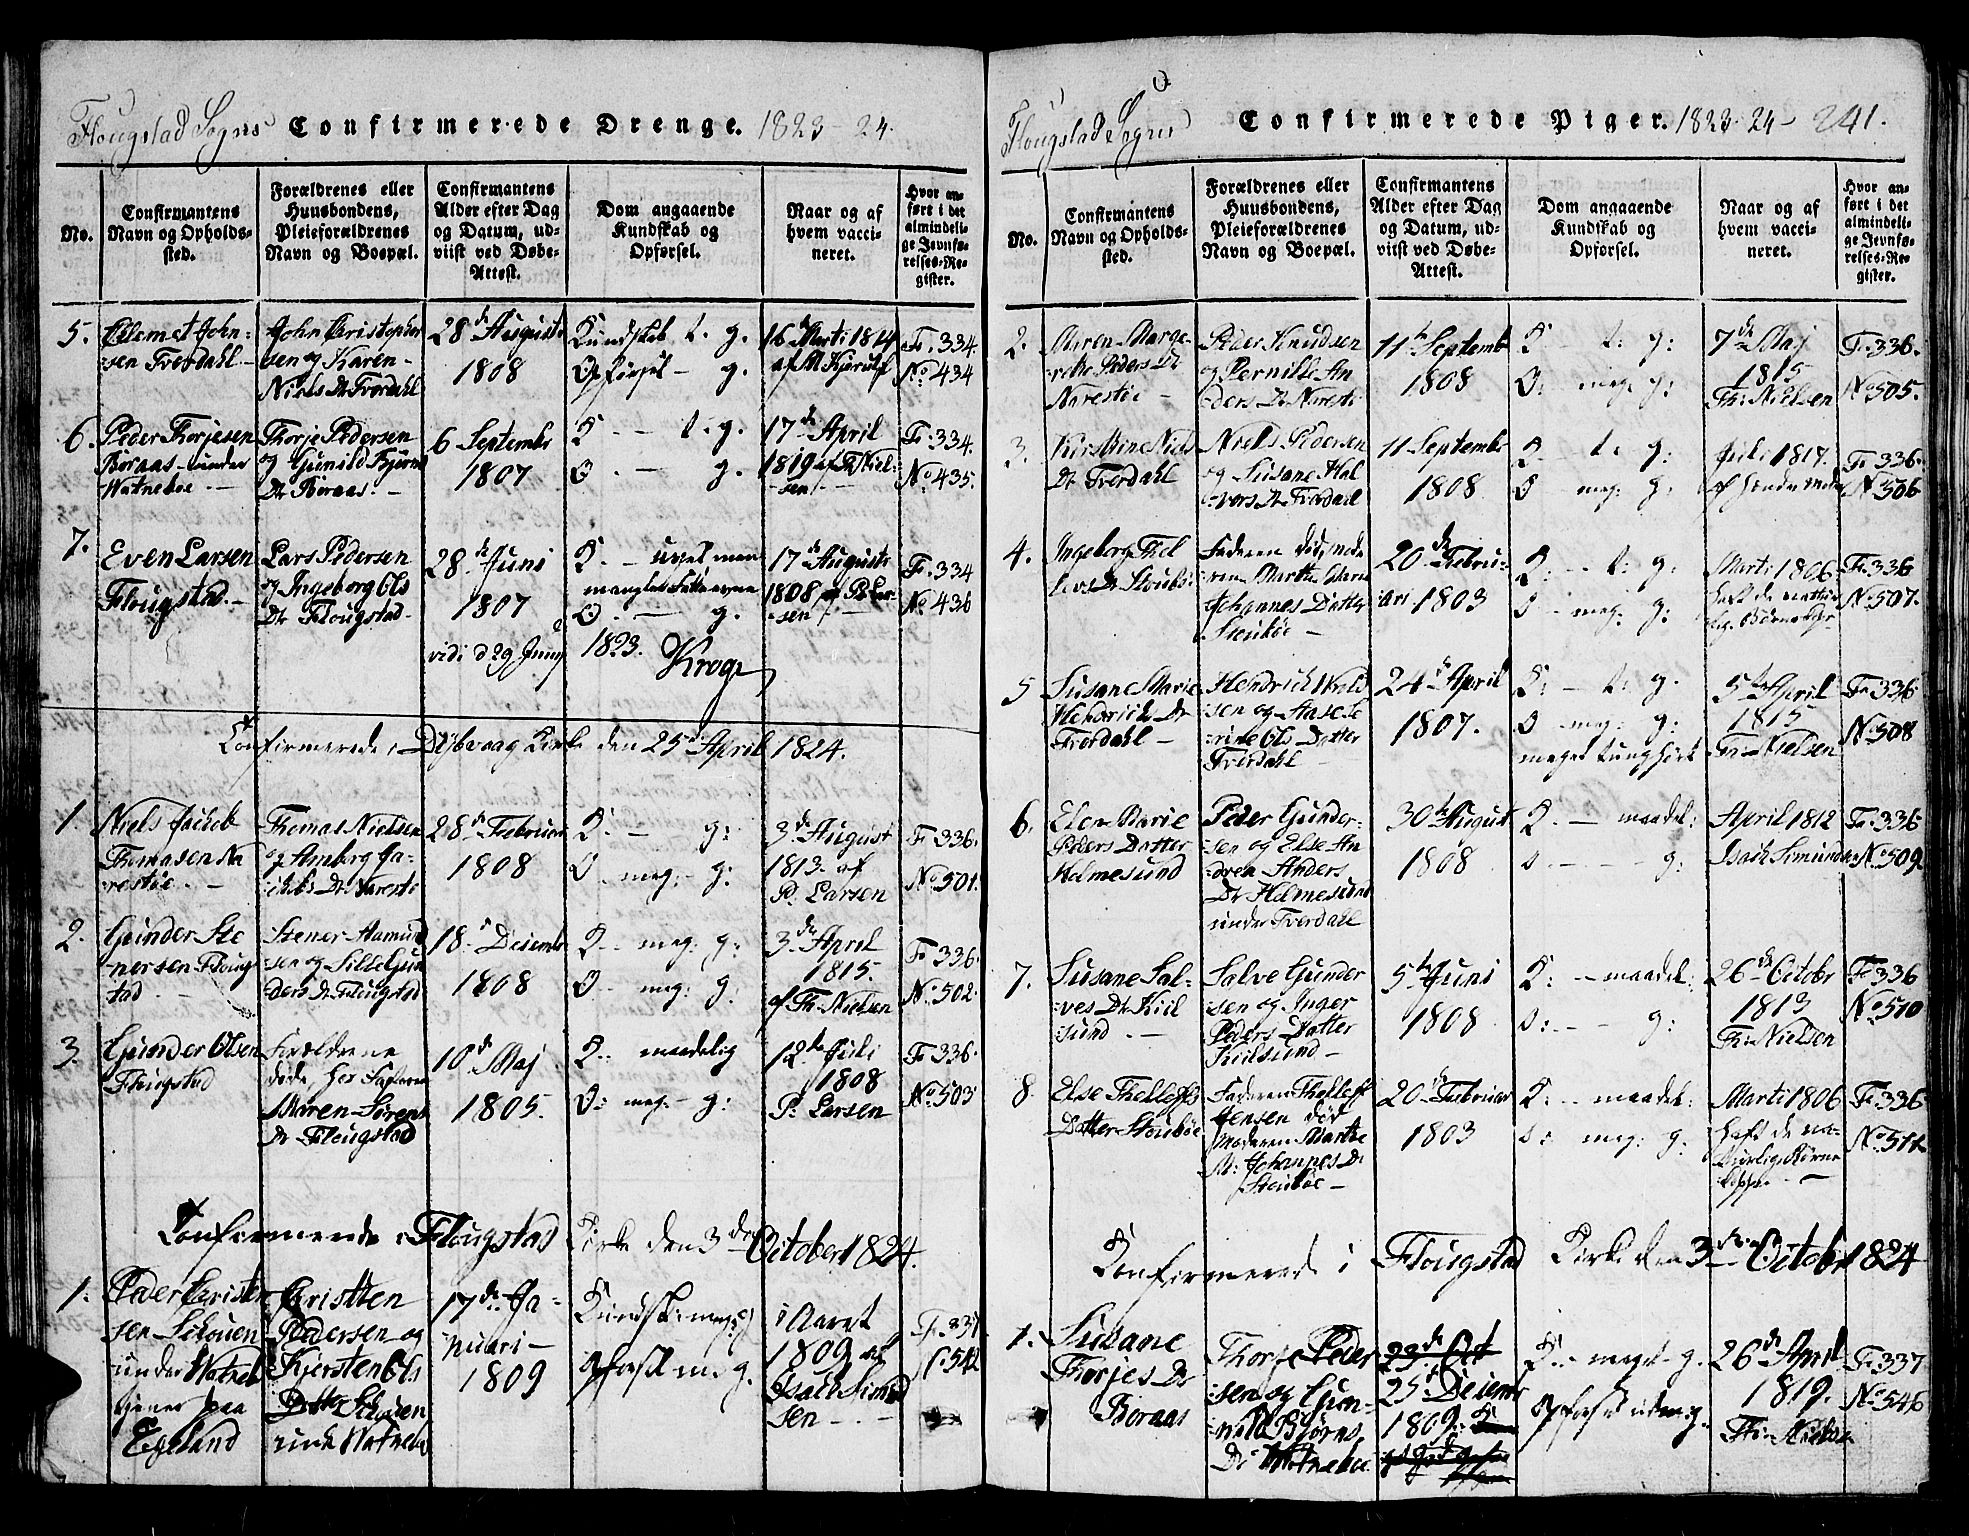 Flougstad Sogns Confirmerede Drenge. 1823-24.
No.
Confirmantens Navn og Opholds-sted.
Forældrenes eller Huusbondens, Pleieforældrenes Navn og Boepæl.
Confirmantens Alder efter Dag og Datum, ud-viist ved Døbe-Attest.
Dom angaaende Kundskab og Opførsel.
Naar og af hvem vacci-neret.
Hvor an-ført i det almindeli-ge Jevnfø-relses-Re-gister.
5.
John-
sen Tverdahl
John Cristopher
sen og Karen
Niels Dr Tverdahl
28de August
1808
Kundskab t. g.
Opførsel - g.
16de Marti 1814
af M Kjerulf
F. 334.
No 434
6.
Peder Thorjesen
Boraas under
Watneboe
Thorje Pedersen
og Gunild Bjørns
Dr Boraas.
6 Septembr
1807
K - t. g.
O. - g.
17de April
1819 af Th Niel-
sen
F. 334.
No 435.
7.
Even Larsen
Flougstad.
Lars Pedersen
og Ingeborg Ols
Dr Flougstad
28de Juni
1807
K. -
mangler
O. - g.
17de August
1808 af P. Lar-
sen
F. 334
No 436
vidi d 29 Juny 1823. Krog
Confirmerede i Dybvaag Kirke den 25de April 1824.
1
Niels Jacob
Thomasen Na
restøe
Thomas Nielsen
og Amberg Ja-
cobs Dr Naresto
28de Februar
1808
K. - g:
O. meg: g:
3de August
1813. af
P. Larsen
F. 336.
No 501.
2.
Gunder Ste
nersen Floug
stad
Stener Aamund
sen og Sille Gun
ders Dr Flougstad
18de Decembr
1808
K. - meg: g:
O - meg: g.
3de April
1815.
af Th: Nielsen
F. 336.
No. 502.
3.
Gunder Olsen
Flougstad
Forældrene
døde, hos
Maren Sørens
Dr Flougstad
10de Maj
1805.
K: maadelig
O: meg: g:
12te Juli
1808
P: Larsen
F. 336.
No. 503
Confirmerede i Flougstad Kirke den 3die October 1824.
1.
Peder Cristen
sen Schouen
under Watneb
tjener paa
Egeland
Cristten
Pedersen og
Kjersten Ols
Datter Schouen
under Watneb
17de Ja-
nuari
1809
Kundsk: meg g
Opførsl m. g.
i Aaret
1809 af
Isach Simond
sen
F. 337
No. 542
Flougstad Sogns Confirmerede Piger. 1823-24 241.
No.
Confirmantens Navn og Opholds-sted.
Forældrenes eller Huusbondens, Pleieforældrenes Navn og Boepæl.
Confirmantens Alder efter Dag og Datum, ud-viist ved Døbe-Attest.
Dom angaaende Kundskab og Opførsel.
Naar og af hvem vacci-neret.
Hvor an-ført i det almindeli-ge Jevnfø-relses-Re-gister.
2.
Maren Marge-
rethe Peders Dr
Narestøe
Peder Knudsen
og Pernille An
ders Dr Naresto
11te Septembr
1808
K - t: g:
O: meg: g:
7de Maj
1815
Th: Nielsen
F. 336.
No 505.
3.
Kirstine Niels
Dr Tverdahl
Niels Pedersen
og Susane Hal
vors Dr Tverdahl
11 Septembr
1808
K - t: g:
O - meg: g:
Juli 1817.
af hendes Moder
F. 336.
No 506
4.
Ingeborg Thel
lefs Dr Stoubø
Faderen død, Mode
ren Marthe Marie
Johannes Datter
Stoubøe
20de Febru-
ari 1803
K: - t: g:
O - meg: g:
Marti 1806
haft de natur
lige Børnekopr
F. 336
No 507.
5
Susane Marie
Hendrichs Dr
Tverdahl
Hendrich Wold
sen og Aase Ca
trine Ols Datter
Tverdahl
24de April
1807.
K: - t: g.
O - meg: g:
meget tunghørt
5te April
1815
Th: Nielsen
F. 336
No 508
6.
Elen Marie
Peders Datter
Holmesund
Peder Gunder-
sen og Else An
dren Anders
Dr Holmesund
under Tverdahl
30te August
1808
K. - maadel:
O - g:
April 1812
Isach Simundsen
F. 336
No 509.
7.
Susane Sal-
ves Dr Kiil
sund
Salve Gunder
sen og Inger
Peders Datter
Kiilsund
5te Juni
1808
K: - maadel:
O: - g:
26de Octobr
1813
Th: Nielsen
F. 336
No 510
8.
Else Thellefs
Datter Stoubøe
Faderen Thellef
Jensen død
Moderen Marthe
M: Johannes Dr
Stoubøe
20de Februar
1803
K: - maadel:
O: meg: g.
Marti 1806
haft de na-
turlige Børne
kopper
F. 336
No. 511
Confirmerede i Flougstad Kirke den 3die Octobr 1824
1.
Susane
Thorjes Dr
Boraas
Thorje Peder
sen og Gun-
nild Bjørns
Dr Watneboe
23de Oct
25de Decembr
1809.
K: - meget g.
Opførsl udm. g.
26de April
1819.
Th: Nielsen
F. 337
No 546